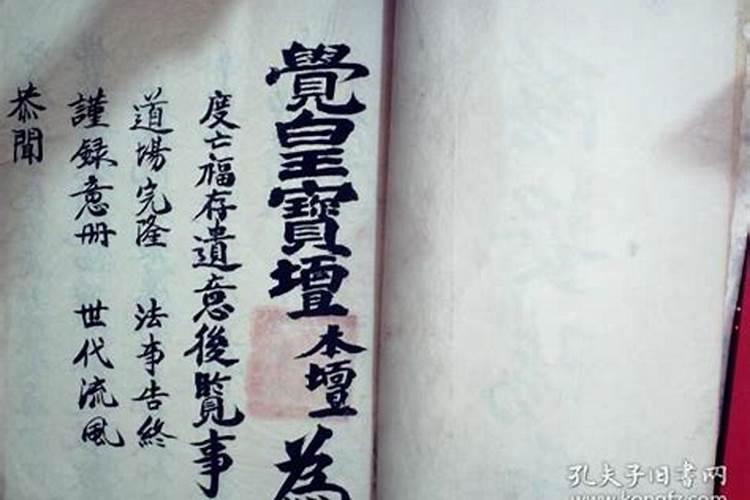 覺皇寶壇 本壇 為
度亡福存遺意後覧事
道場完隆 法事告終
謹録意册 世代流風
恭聞
孔夫子旧書网